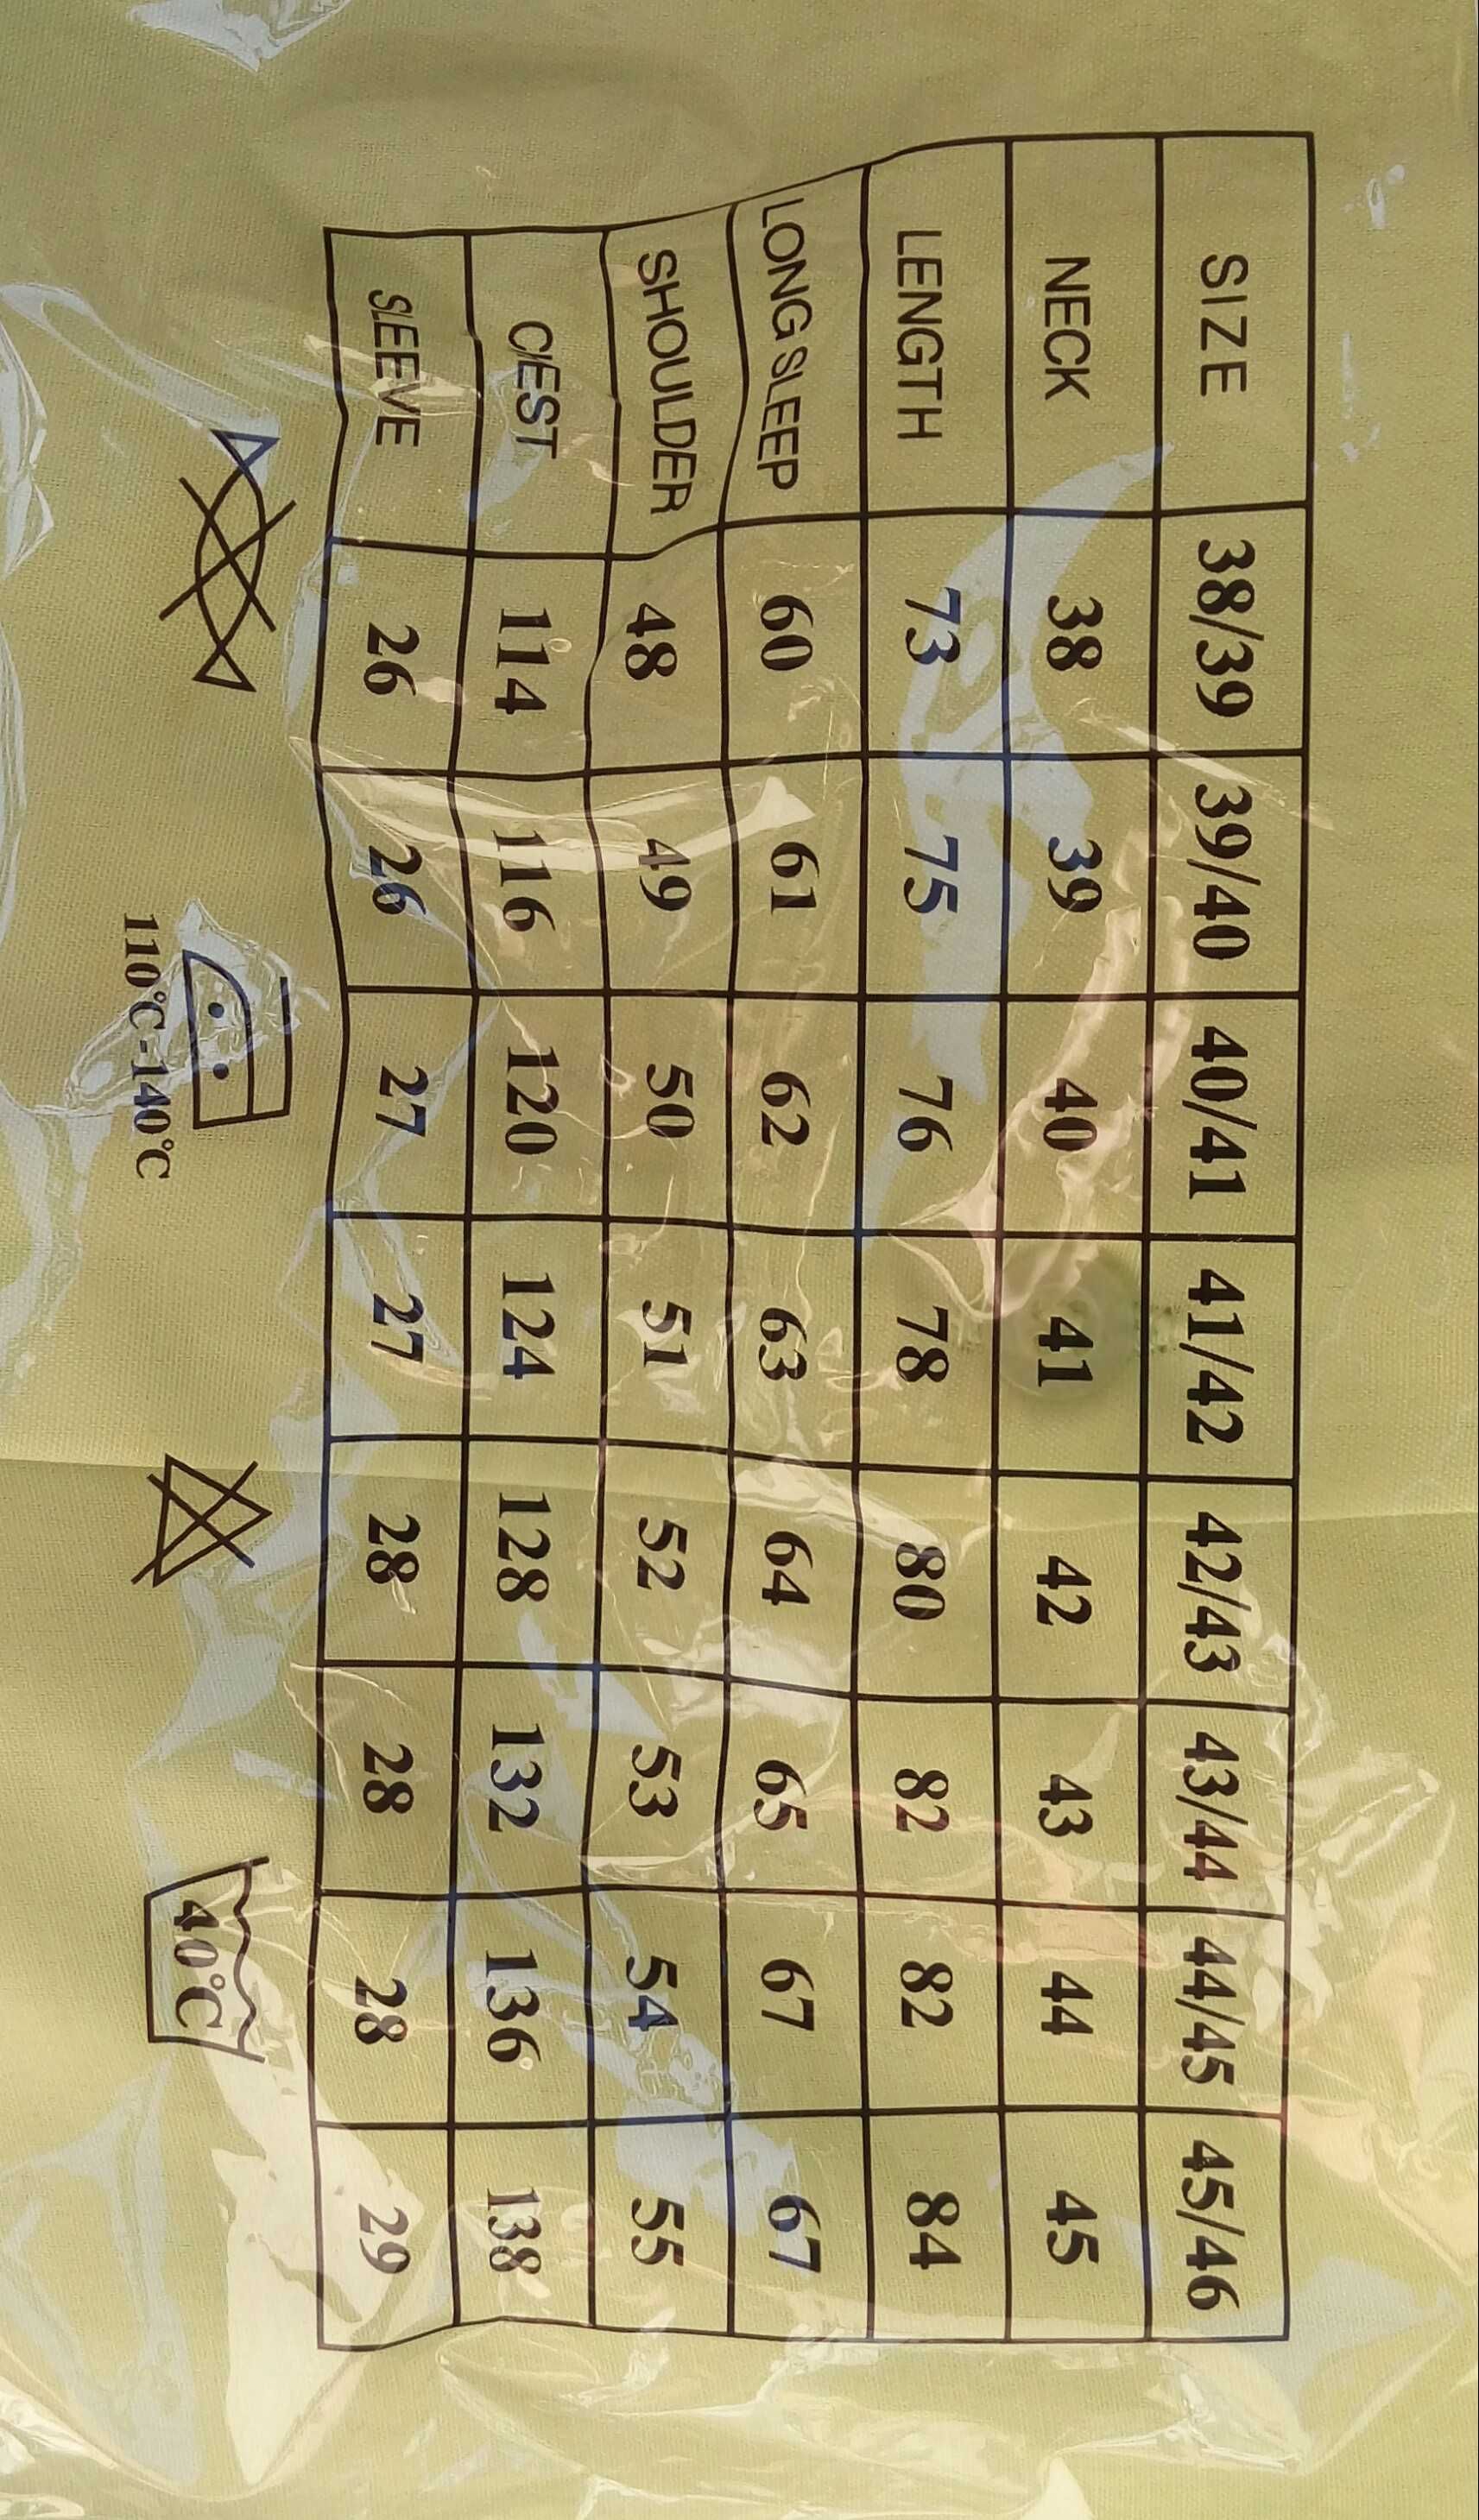 SIZE 38/39 39/40 40/41 41/42 42/43 43/44 44/45 45/46
NECK 38 39 40 41 42 43 44 45
LENGTH 73 75 76 78 80 82 82 84
LONG SLEEP 60 61 62 63 64 65 67 67
SHOULDER 48 49 50 51 52 53 54 55
CHEST 114 116 120 124 128 132 136 138
SLEEVE 26 26 27 27 28 28 28 29
40°C
110°C-140°C